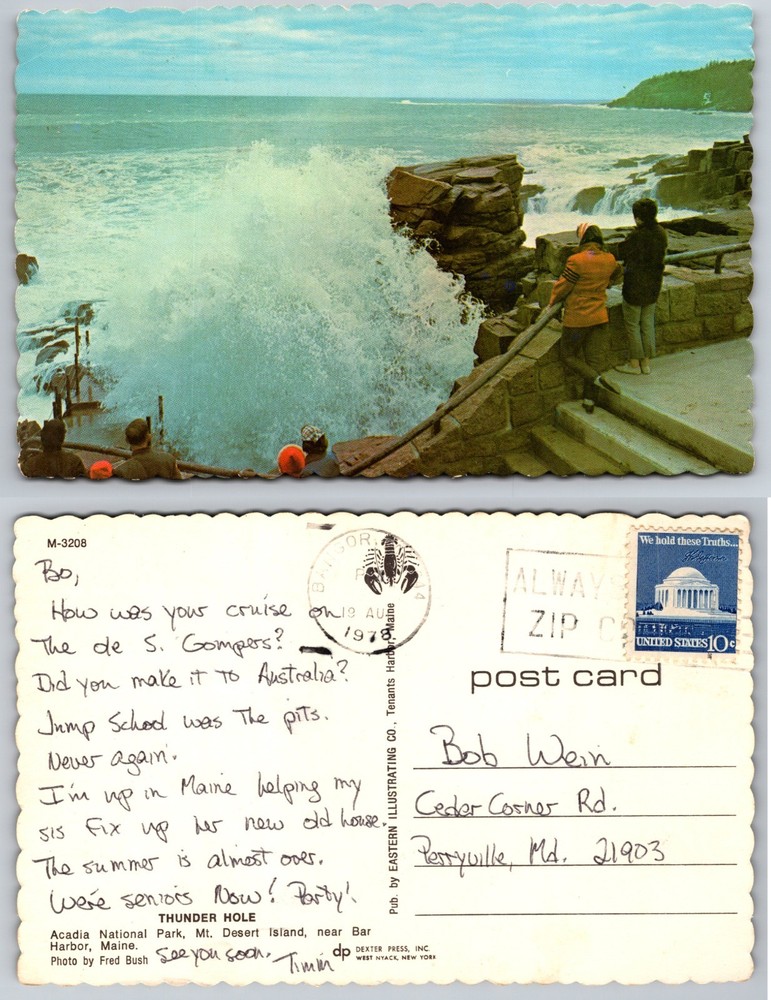 M-3208
Bo,
How was your cruise on
The de S. Gompers?
Did you make it to Australia?
Jump School was The pits.
Never again.
I'm up in Maine helping my
sis fix up her new old house.
The summer is almost over.
We're seniors Now! Party!
THUNDER HOLE
Acadia National Park, Mt. Desert Island, near Bar
Harbor, Maine.
Photo by Fred Bush
See you soon.
dp DEXTER PRESS, INC.
WEST NYACK, NEW YORK
Pub. by EASTERN ILLUSTRATING CO., Tenants Harbor, Maine
BANGOR,
19 AU
1978
ALWAYS
ZIP
We hold these Truths...
UNITED STATES 10c
post card
Bob Wein
Cedar Corner Rd.
Perryville, Md. 21903